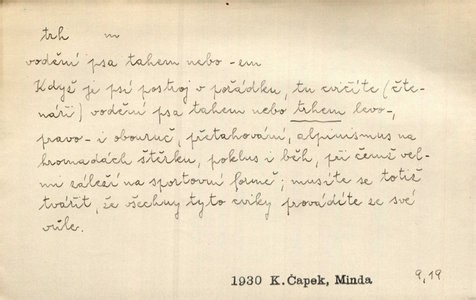 trh m
vodění psa tahem nebo -em
Když je psí postroj v pořádku, tu cvičíte (čte-
náři) vodění psa tahem nebo trhem levo-,
pravo- i obouruč, přetahování, alpinismus na
hromadách štěrku, poklus i běh, při čemž vel-
mi záleží na sportovní formě; musíte se totiž
tvářit, že všechny tyto cviky provádíte ze své
vůle.
1930 K.Čapek, Minda 9,19